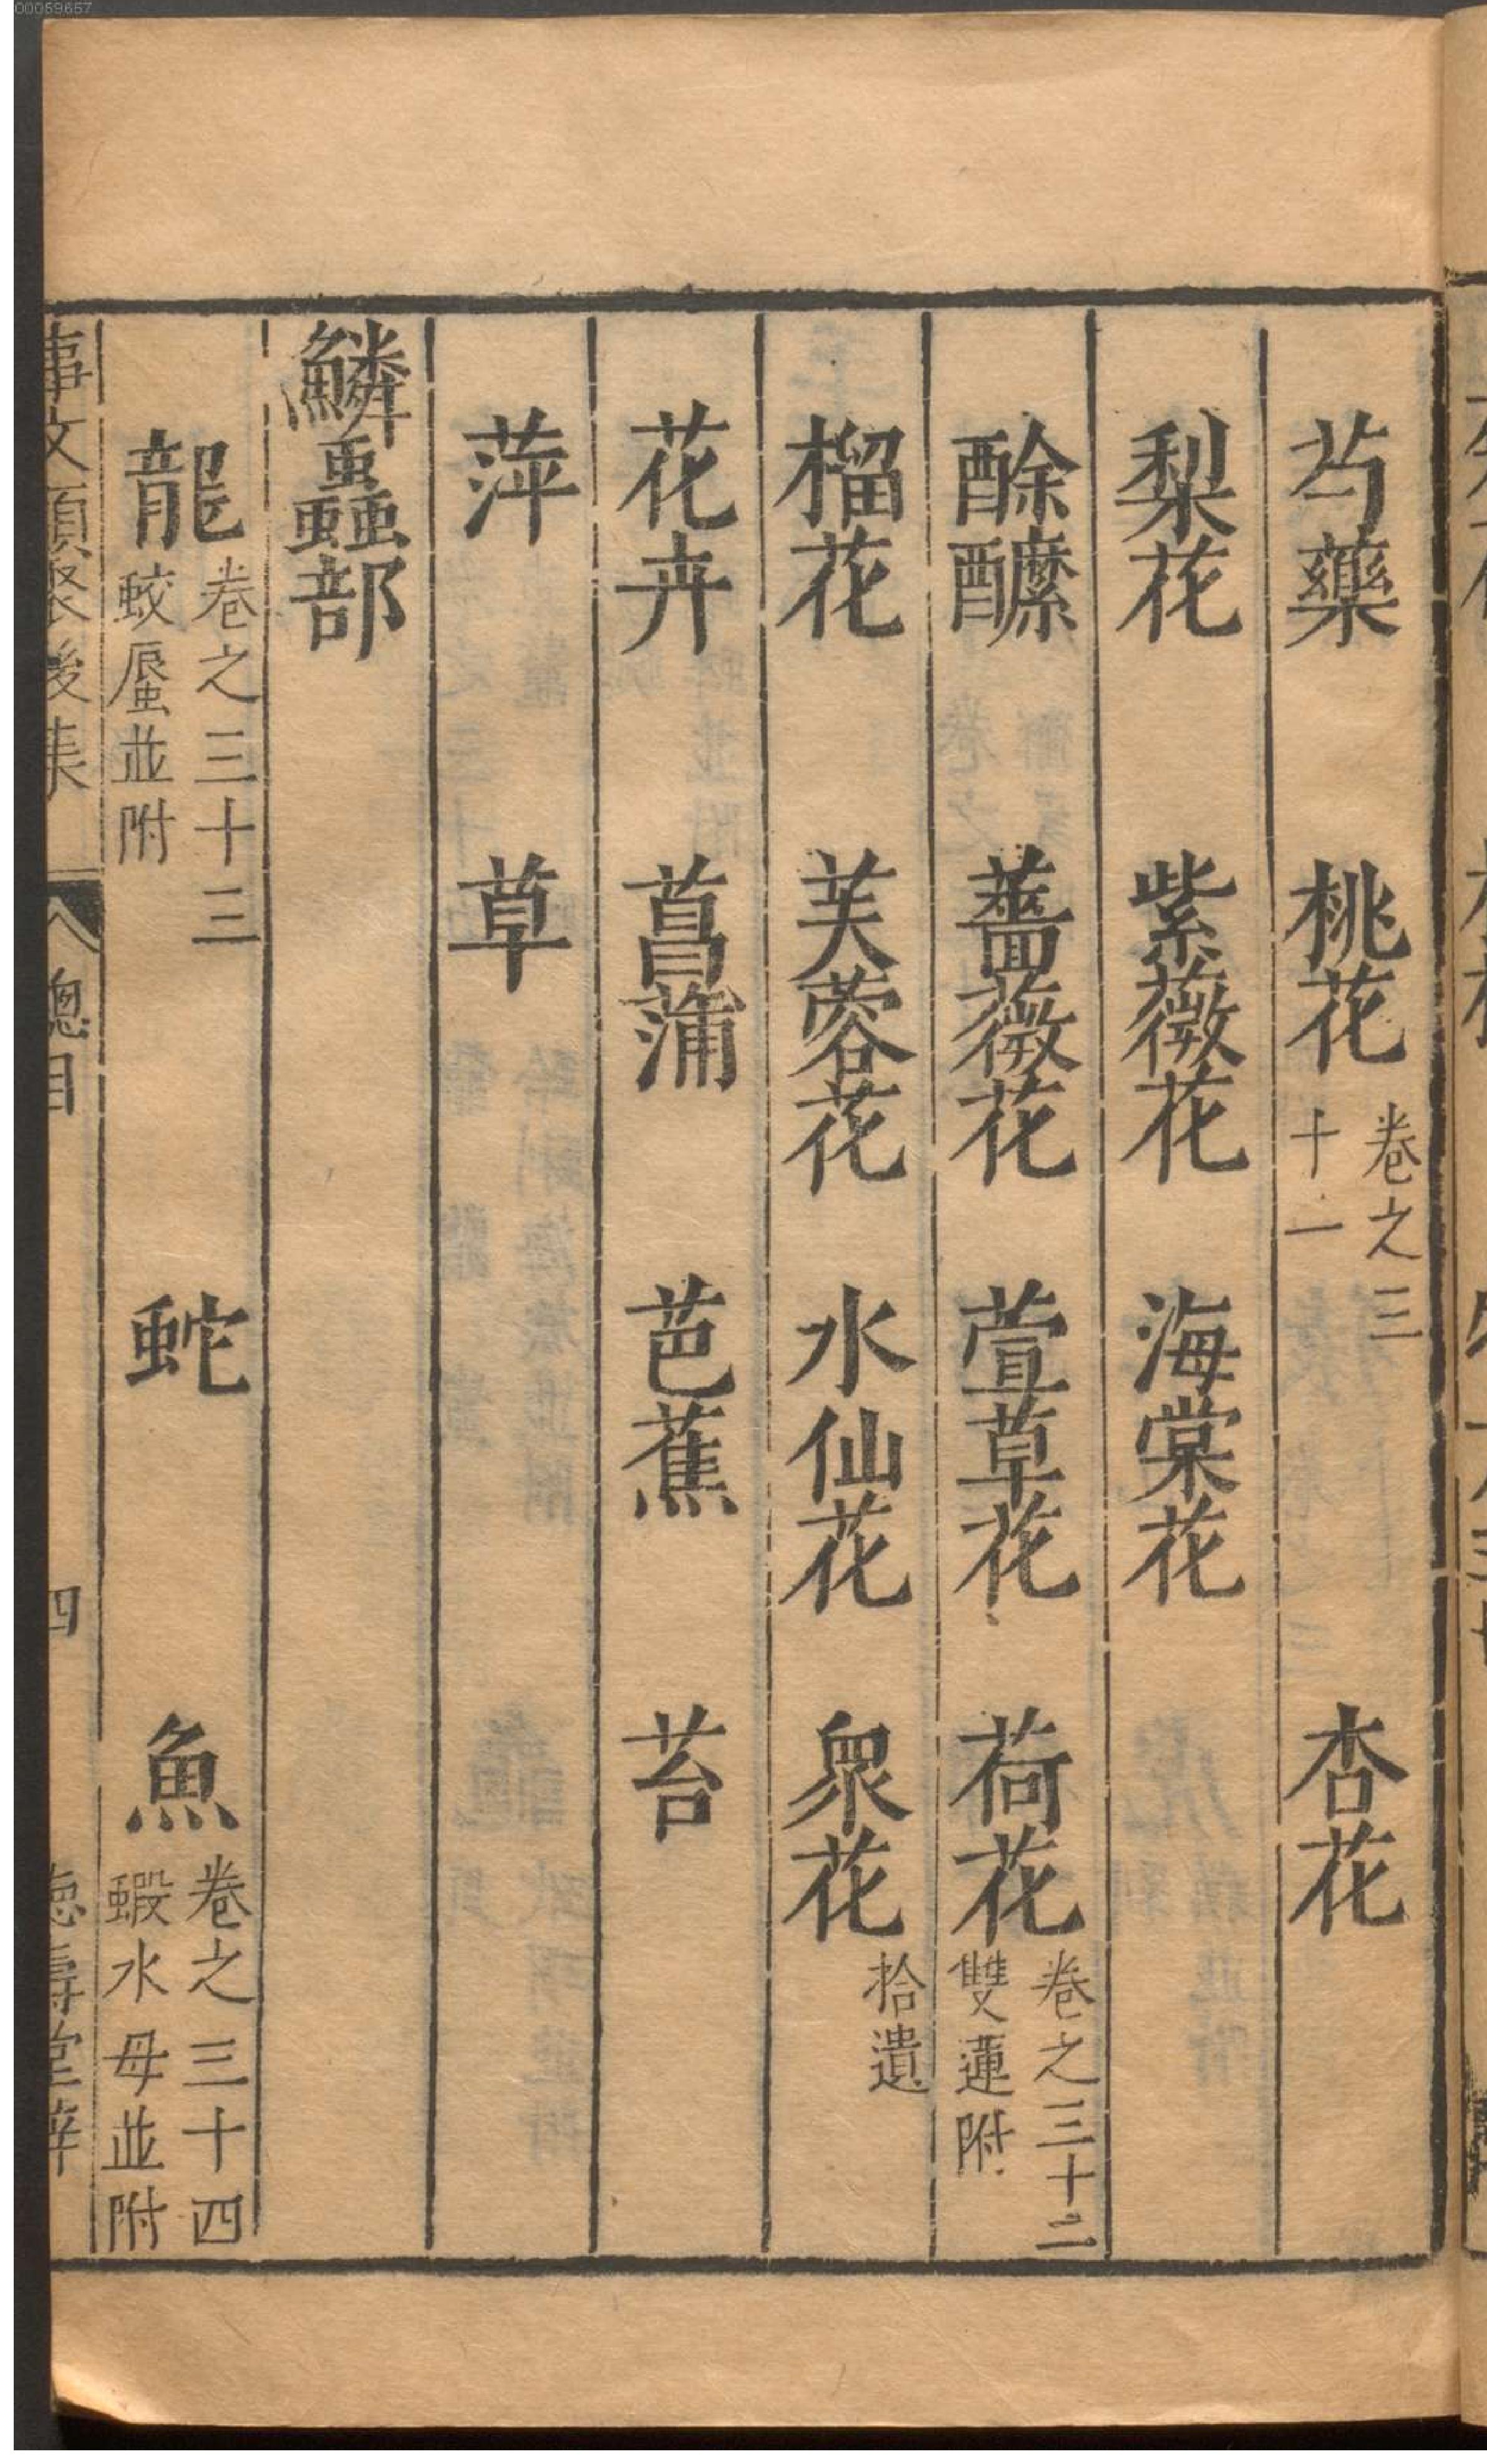 00059657
芍藥 桃花 卷之三十一 杏花
梨花 紫薇花 海棠花
酴醿 薔薇花 萱草花 荷花 卷之三十二 雙蓮附
榴花 芙蓉花 水仙花 衆花 拾遺
花卉 菖蒲 芭蕉 苔
萍 草
鱗蟲部
龍 卷之三十三 蛟蜃並附 蛇 魚 卷之三十四 蝦水母並附
事文類聚後集 總目 四 德壽堂梓